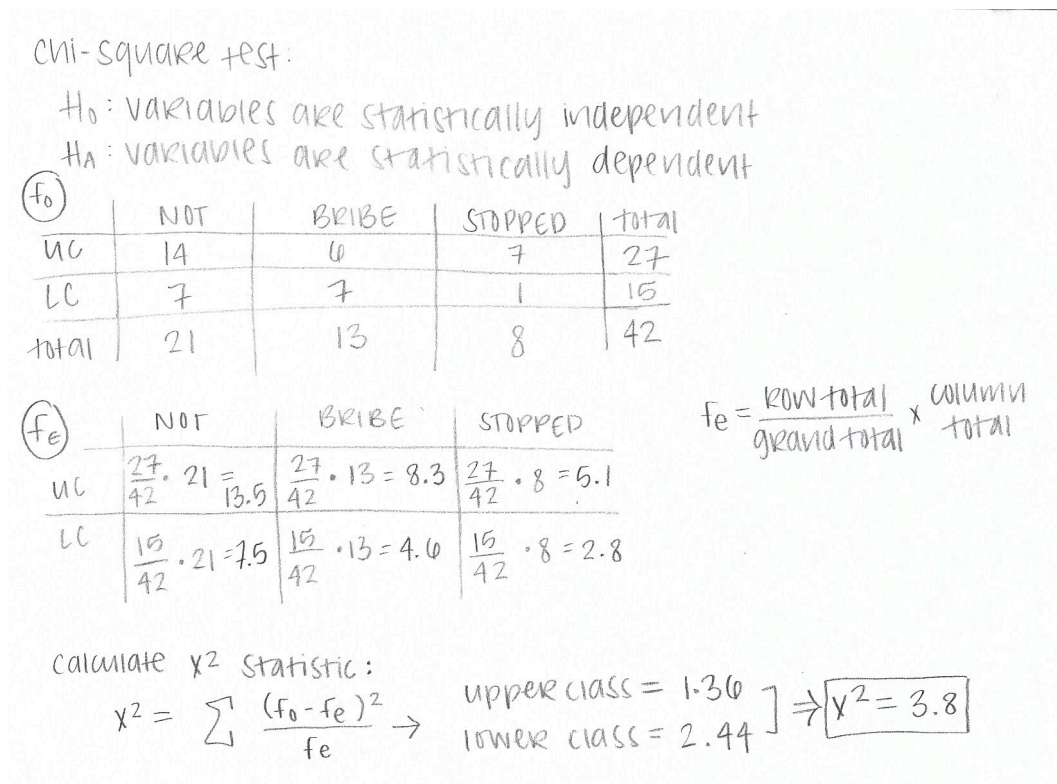 Chi-square test:
H₀: variables are statistically independent
Hᴀ: variables are statistically dependent
f₀
NOT BRIBE STOPPED total
UC 14 6 7 27
LC 7 7 1 15
total 21 13 8 42
fᴇ NOT BRIBE STOPPED
UC 27/42 · 21 = 13.5 27/42 · 13 = 8.3 27/42 · 8 = 5.1
LC 15/42 · 21 = 7.5 15/42 · 13 = 4.6 15/42 · 8 = 2.8
fe = row total / grand total × column total
Calculate χ² statistic:
χ² = Σ (f₀ - fe)² / fe → upper class = 1.36
lower class = 2.44 ] ⇒ χ² = 3.8